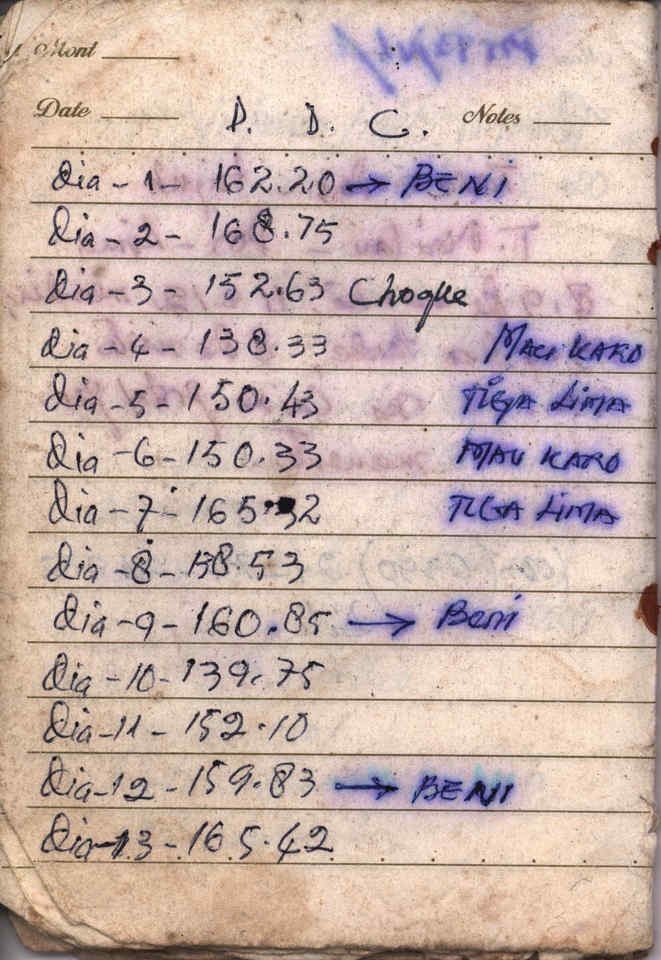 Mont
Date P. D. C. Notes
Dia - 1 - 162.20 → BENI
Dia - 2 - 168.75
Dia - 3 - 152.63 Choque
Dia - 4 - 138.33 MAU KARO
Dia - 5 - 150.43 TIGA LIMA
Dia - 6 - 150.33 MAU KARO
Dia - 7 - 165.32 TIGA LIMA
Dia - 8 - 138.53
Dia - 9 - 160.85 → Beni
Dia - 10 - 139.75
Dia - 11 - 152.10
Dia - 12 - 159.83 → BENI
Dia - 13 - 165.42